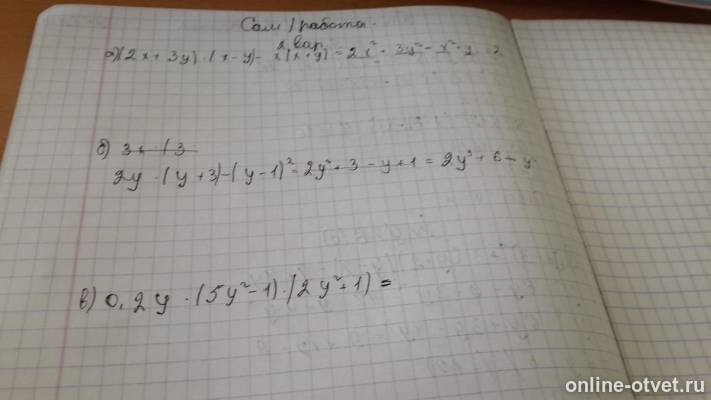 Сам/работа.
2 вар
а) (2x + 3y) · (x - y) - x(x + y) = 2x² - 3y² - x² - y
б) 3x · (3
2y · (y + 3) - (y - 1)² = 2y² + 3 - y + 1 = 2y³ + 6 - y
в) 0,2y · (5y² - 1) · (2y² + 1) =
online-otvet.ru